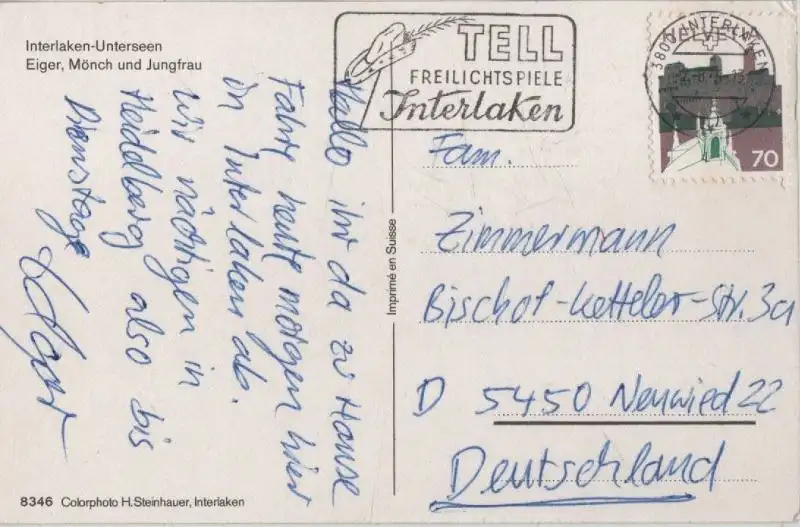 Interlaken-Unterseen
Eiger, Mönch und Jungfrau
TELL
FREILICHTSPIELE
Interlaken
3800 INTERLAKEN
HELVETIA
70
Hallo ihr da zu Hause
Fahre heute morgen hier
in Interlaken ab.
Wir nächtigen in
Heidelberg also bis
Dienstag
Edgar
Imprimé en Suisse
Fam.
Zimmermann
Bischof-Ketteler-Str. 3a
D 5450 Neuwied 22
Deutschland
8346 Colorphoto H.Steinhauer, Interlaken